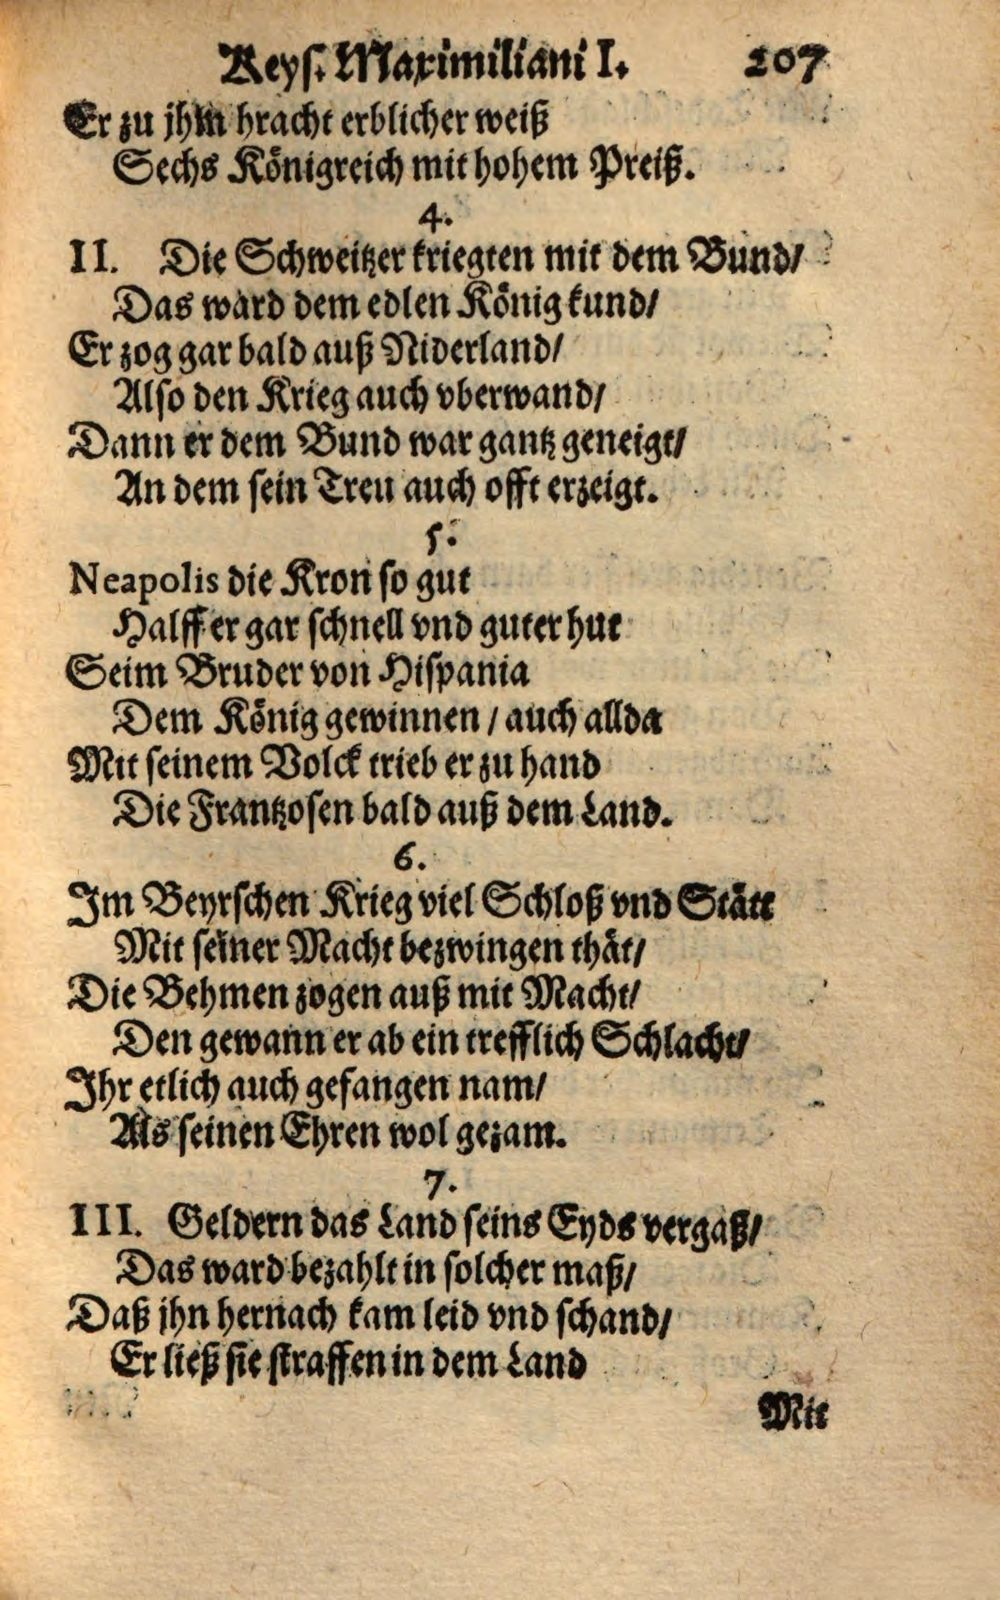 Keys. Maximiliani I. 207
Er zu jhm bracht erblicher weiß
Sechs Königreich mit hohem Preiß.
4.
II. Die Schweitzer kriegten mit dem Bund/
Das ward dem edlen König kund/
Er zog gar bald auß Niderland/
Also den Krieg auch vberwand/
Dann er dem Bund war gantz geneigt/
An dem sein Treu auch offt erzeigt.
5.
Neapolis die Kron so gut
Halff er gar schnell vnd guter hut
Seim Bruder von Hispania
Dem König gewinnen / auch allda
Mit seinem Volck trieb er zu hand
Die Frantzosen bald auß dem Land.
6.
Im Beyrschen Krieg viel Schloß vnd Stätt
Mit seiner Macht bezwingen thät/
Die Behmen zogen auß mit Macht/
Den gewann er ab ein trefflich Schlacht/
Ihr etlich auch gefangen nam/
Als seinen Ehren wol gezam.
7.
III. Geldern das Land seins Eyds vergaß/
Das ward bezahlt in solcher maß/
Daß jhn hernach kam leid vnd schand/
Er ließ sie straffen in dem Land
Mit